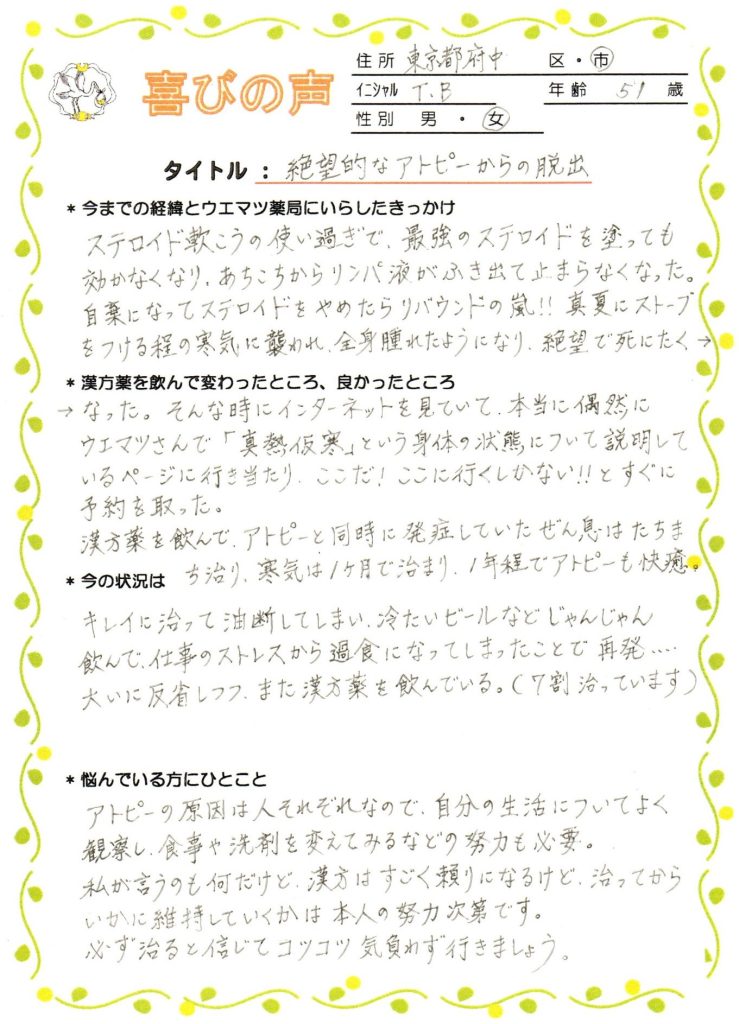 喜びの声
住所 東京都府中 区・市
イニシャル T.B 年齢 51 歳
性別 男・女
タイトル：絶望的なアトピーからの脱出
* 今までの経緯とウエマツ薬局にいらしたきっかけ
ステロイド軟こうの使い過ぎで、最強のステロイドを塗っても
効かなくなり、あちこちからリンパ液がふき出て止まらなくなった。
自棄になってステロイドをやめたらリバウンドの嵐!! 真夏にストーブ
をつける程の寒気に襲われ、全身腫れたようになり、絶望で死にたく→
* 漢方薬を飲んで変わったところ、良かったところ
→なった。そんな時にインターネットを見ていて、本当に偶然に
ウエマツさんで「真熱仮寒」という身体の状態について説明して
いるページに行き当たり、ここだ!ここに行くしかない!!とすぐに
予約を取った。
漢方薬を飲んで、アトピーと同時に発症していたぜん息はたちま
ち治り、寒気は1ヶ月で治まり、1年程でアトピーも快癒。
* 今の状況は
キレイに治って油断してしまい、冷たいビールなどじゃんじゃん
飲んで、仕事のストレスから過食になってしまったことで再発....
大いに反省しつつ、また漢方薬を飲んでいる。(7割治っています)
* 悩んでいる方にひとこと
アトピーの原因は人それぞれなので、自分の生活についてよく
観察し、食事や洗剤を変えてみるなどの努力も必要。
私が言うのも何だけど、漢方はすごく頼りになるけど、治ってから
いかに維持していくかは本人の努力次第です。
必ず治ると信じてコツコツ気負わず行きましょう。